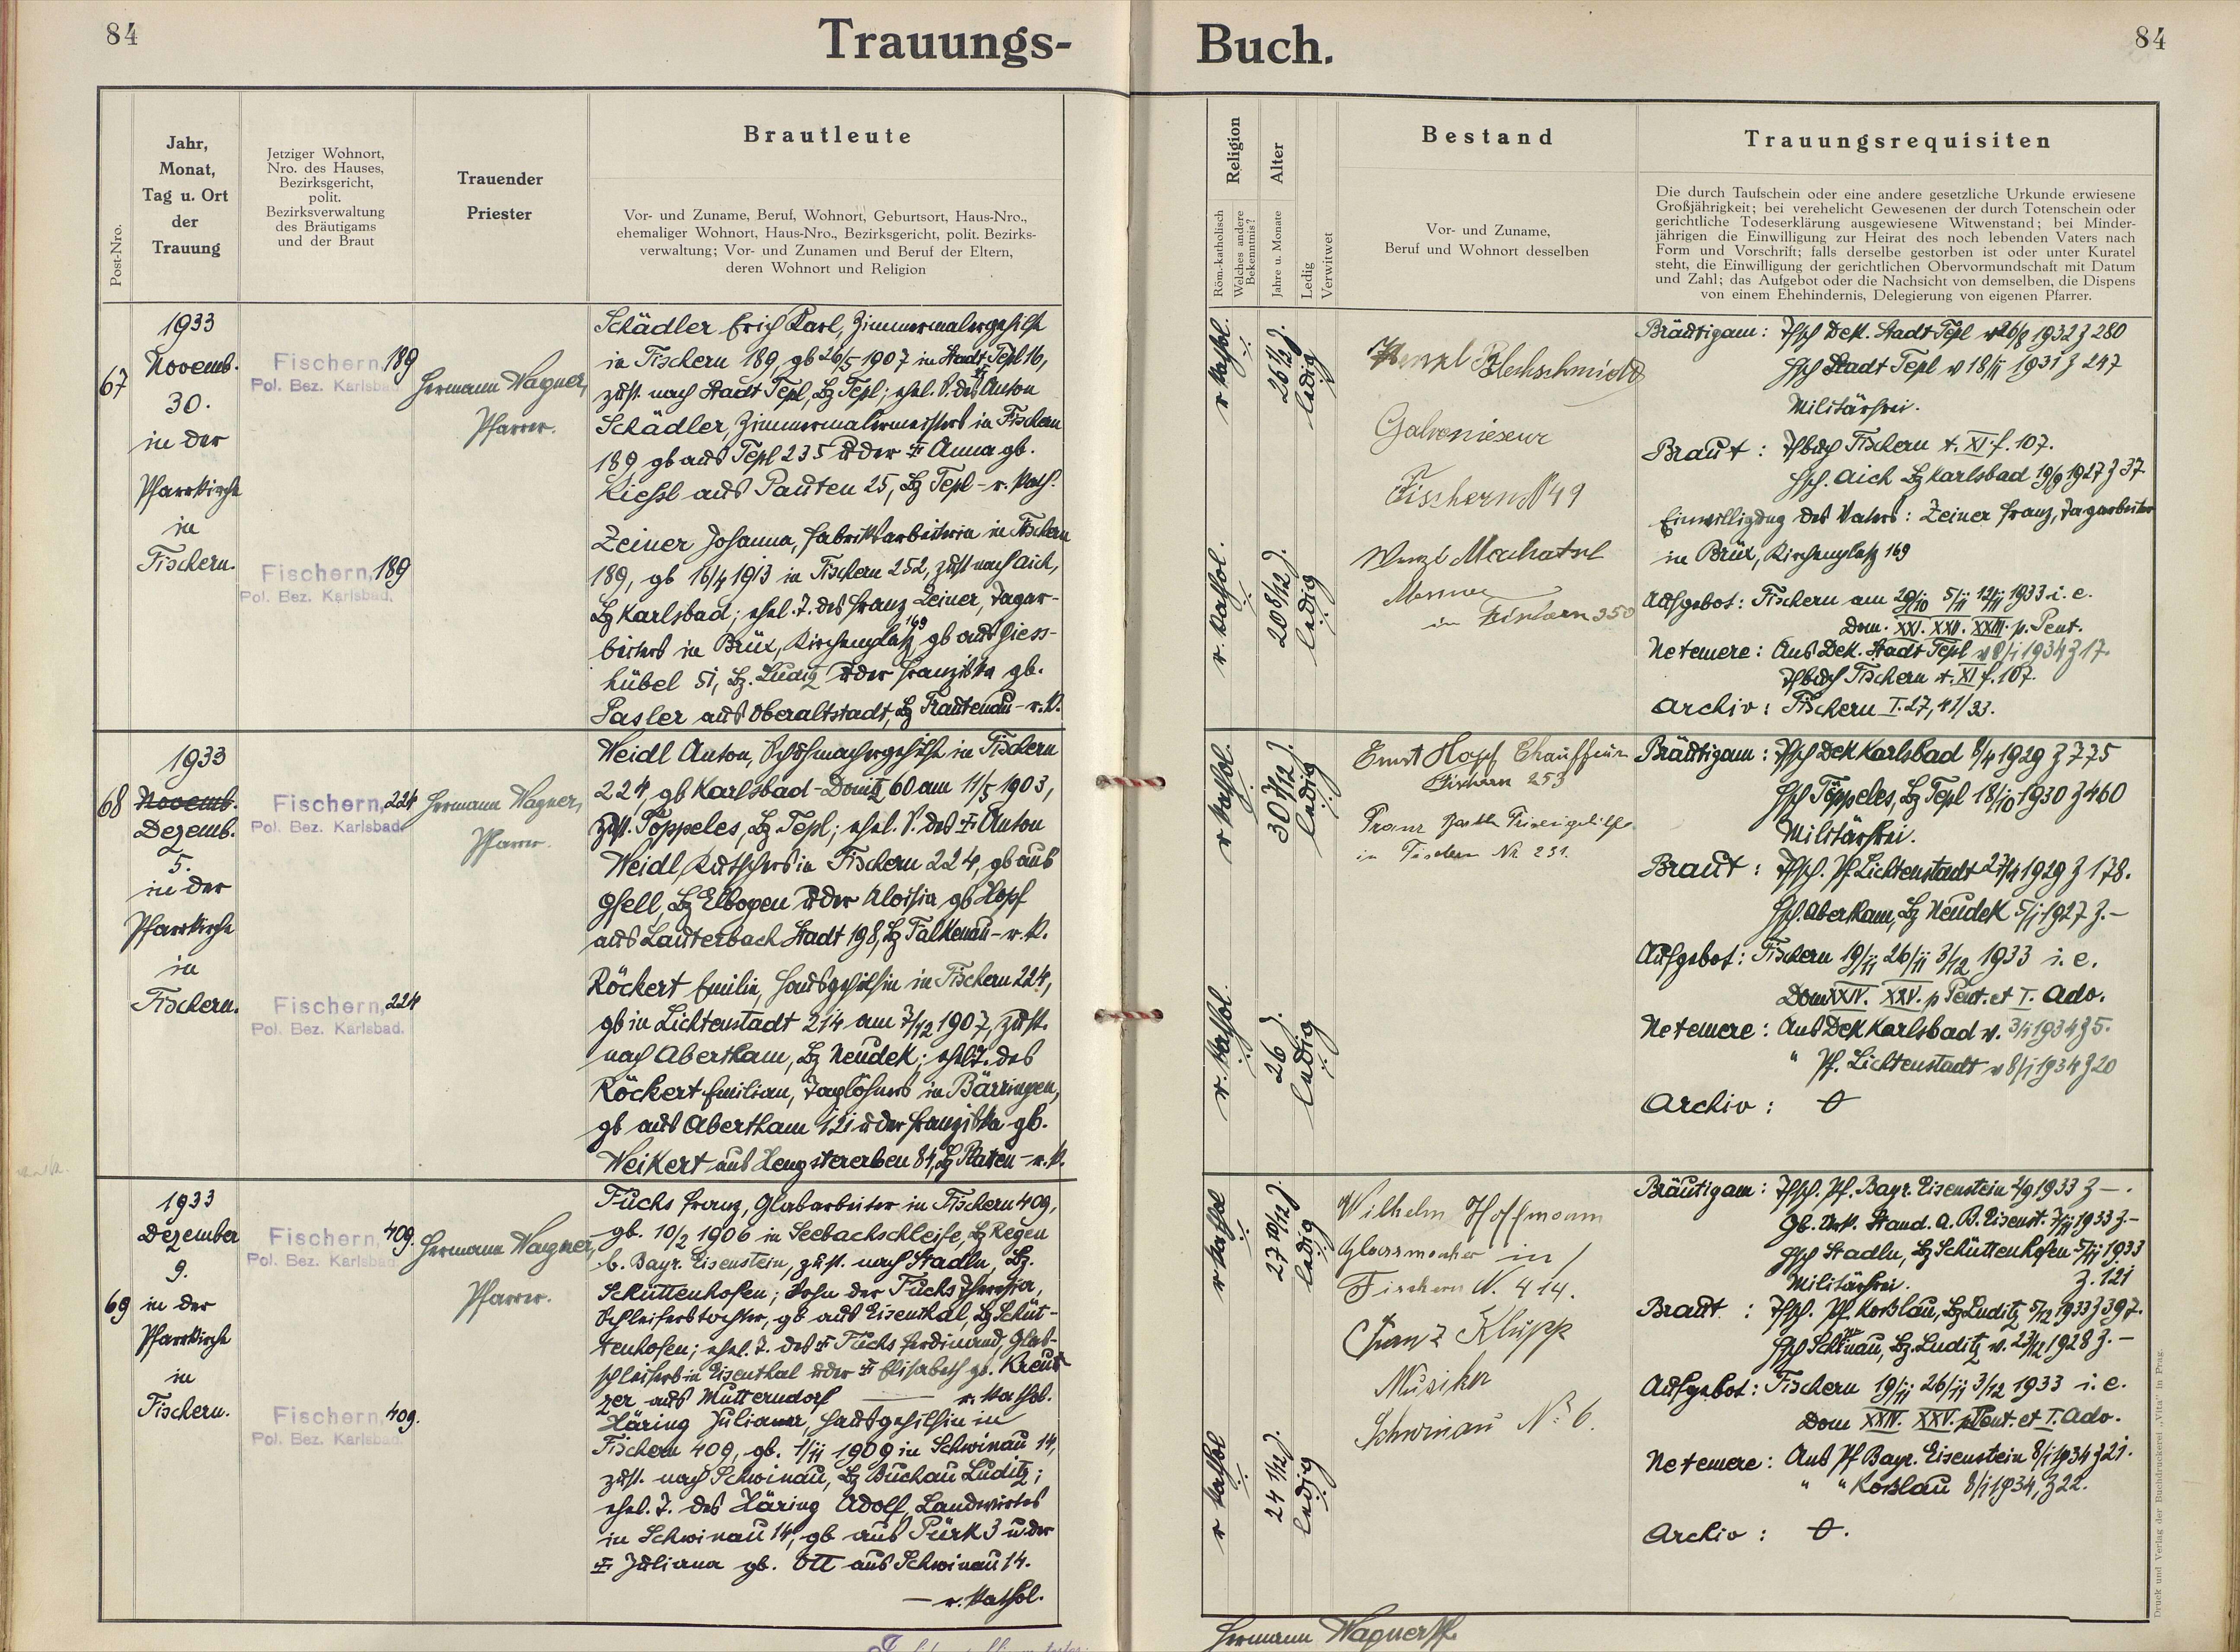 84
Trauungs-
Post-Nro.
Jahr,
Monat,
Tag u. Ort
der
Trauung
Jetziger Wohnort,
Nro. des Hauses,
Bezirksgericht,
polit.
Bezirksverwaltung
des Bräutigams
und der Braut
Trauender
Priester
Brautleute
Vor- und Zuname, Beruf, Wohnort, Geburtsort, Haus-Nro.,
ehemaliger Wohnort, Haus-Nro., Bezirksgericht, polit. Bezirks-
verwaltung; Vor- und Zunamen und Beruf der Eltern,
deren Wohnort und Religion
67
1933
Novemb.
30.
in der
Pfarrkirche
in
Fischern.
Fischern, 189
Pol. Bez. Karlsbad.
Fischern, 189
Pol. Bez. Karlsbad.
Hermann Wagner,
Pfarrer.
Schädler Erich Karl, Zimmermalergehilfe
in Fischern 189, gb 26/5 1907 in Stadt Tepl 16,
zust. nach Stadt Tepl, Bz Tepl; ehel. S. des Anton
Schädler, Zimmermalermeisters in Fischern
189, gb aus Tepl 235 u der Anna gb.
Kiessl aus Pauten 25, Bz Tepl - r. kath.
Zeiner Johanna, Fabriksarbeiterin in Fischern
189, gb 16/4 1913 in Fischern 252, zust nach Aich,
Bz Karlsbad; ehel. T. des Franz Zeiner, Tagar-
beiters in Brüx, Kirchenplatz 169, gb aus Giess-
hübel 51, Bz. Luditz u der Franziska gb.
Pasler aus Oberaltstadt, Bz Trautenau - r. k.
68
1933
Novemb.
Dezemb.
5.
in der
Pfarrkirche
in
Fischern.
Fischern, 224
Pol. Bez. Karlsbad.
Fischern, 224
Pol. Bez. Karlsbad.
Hermann Wagner,
Pfarrer.
Weidl Anton, Schuhmachergehilfe in Fischern
224, gb Karlsbad - Donitz 60 am 11/5 1903,
zust. Töppeles, Bz Tepl; ehel. S. des Anton
Weidl, Kutschers in Fischern 224, gb aus
Gsell, Bz Elbogen u der Aloisia gb Hopf
aus Lauterbach Stadt 198, Bz Falkenau - r. k.
Röckert Emilie, Hausgehilfin in Fischern 224,
gb in Lichtenstadt 214 am 7/12 1907, zust.
nach Abertham, Bz Neudek; ehel T. des
Röckert Emilian, Taglöhners in Bärringen,
gb aus Abertham 121 u der Franziska gb.
Weikert aus Hengstererben 84, Bz Platten - r. k.
69
1933
Dezember
9.
in der
Pfarrkirche
in
Fischern.
Fischern, 409.
Pol. Bez. Karlsbad.
Fischern, 409.
Pol. Bez. Karlsbad.
Hermann Wagner,
Pfarrer.
Fuchs Franz, Glasarbeiter in Fischern 409,
gb. 10/2 1906 in Seebachschleife, Bz Regen
b. Bayr. Eisenstein, zust. nach Stadln, Bz.
Schüttenhofen; Sohn der Fuchs Theresia,
Schleiferstochter, gb aus Eisenthal, Bz Schüt-
tenhofen; ehel. T. des Fuchs Ferdinand, Glas-
schleifers in Eisenthal u der Elisabeth gb. Kreut
zer aus Mutterndorf — r. kathol.
Häring Juliana, Hausgehilfin in
Fischern 409, gb. 1/11 1909 in Schwinau 14,
zust. nach Schwinau, Bz Buchau Luditz;
ehel. T. des Häring Adolf, Landwirtes
in Schwinau 14, gb aus Pürk 3 u der
Juliana gb. Ott aus Schwinau 14.
— r. kathol.
Buch.
84
Religion
Röm.-katholisch
Welches andere
Bekenntnis?
Alter
Jahre u. Monate
Ledig
Verwitwet
Bestand
Vor- und Zuname,
Beruf und Wohnort desselben
Trauungsrequisiten
Die durch Taufschein oder eine andere gesetzliche Urkunde erwiesene
Großjährigkeit; bei verehelicht Gewesenen der durch Totenschein oder
gerichtliche Todeserklärung ausgewiesene Witwenstand; bei Minder-
jährigen die Einwilligung zur Heirat des noch lebenden Vaters nach
Form und Vorschrift; falls derselbe gestorben ist oder unter Kuratel
steht, die Einwilligung der gerichtlichen Obervormundschaft mit Datum
und Zahl; das Aufgebot oder die Nachsicht von demselben, die Dispens
von einem Ehehindernis, Delegierung von eigenen Pfarrer.
r kathol.
26 6/12 J.
ledig
r. kathol.
20 8/12 J.
ledig
Wenzl Blechschmidt
Galvaniseur
Fischern N 49
Wenzl
Mesner
in Fischern 350
Bräutigam: Tfsch Dek. Stadt Tepl v 26/8 1932 Z 280
Hsch Stadt Tepl v 18/11 1931 Z 247
Militärfrei.
Braut: Tfbuch Fischern t. XI f. 107.
Hsch. Aich Bz Karlsbad 19/9 1927 Z 37
Einwilligung des Vaters: Zeiner Franz, Tagarbeiter
in Brüx, Kirchenplatz 169
Aufgebot: Fischern am 29/10 5/11 12/11 1933 i. e.
Dom. XXI. XXII. XXIII. p. Pent.
Ne temere: Aus Dek. Stadt Tepl v 8/1 1934 Z 17.
Tfbuch Fischern t. XI f. 107.
Archiv: Fischern I. 27, 41/33.
r kathol.
30 7/12 J.
ledig
r. kathol.
26 J.
ledig
Ernst Hopf Chauffeur
Fischern 253
Franz
in Fischern Nr. 231.
Bräutigam: Tfsch Dek Karlsbad 8/4 1929 Z 775
Hsch Töppeles, Bz Tepl 18/10 1930 Z 460
Militärfrei.
Braut: Tfsch. Pf. Lichtenstadt 27/4 1929 Z 178.
Hsch. Abertham, Bz Neudek 5/1 1927 Z. —
Aufgebot: Fischern 19/11 26/11 3/12 1933 i. e.
Dom XXIV. XXV. p Pent. et I. Adv.
Ne temere: Aus Dek Karlsbad v. 3/1 1934 Z 5.
" Pf. Lichtenstadt v 8/1 1934 Z 20
Archiv:
r kathol
27 10/12 J.
ledig
r kathol
24 1/12 J.
ledig
Wilhelm Hoffmann
Glasmacher in
Fischern N. 414.
Franz Klupp
Musiker
Schwinau No 6.
Bräutigam: Tfsch. Pf. Bayr. Eisenstein 4/9 1933 Z —.
Gb. Urk. Stand. A. B. Eisenst. 7/11 1933 Z. —
Hsch Stadln, Bz Schüttenhofen 5/11 1933
Militärfrei. Z. 121
Braut: Tfsch. Pf. Koßlau, Bz Luditz 5/12 1933 Z 397.
Hsch Schwinau, Bz. Luditz v. 23/12 1928 Z. —
Aufgebot: Fischern 19/11 26/11 3/12 1933 i. e.
Dom XXIV. XXV. p Pent. et I. Adv.
Ne temere: Aus Pf Bayr. Eisenstein 8/1 1934 Z 21.
" " Koßlau 8/1 1934, Z 22.
Archiv:
Hermann Wagner Pf.
Druck und Verlag der Buchdruckerei „Vita" in Prag.